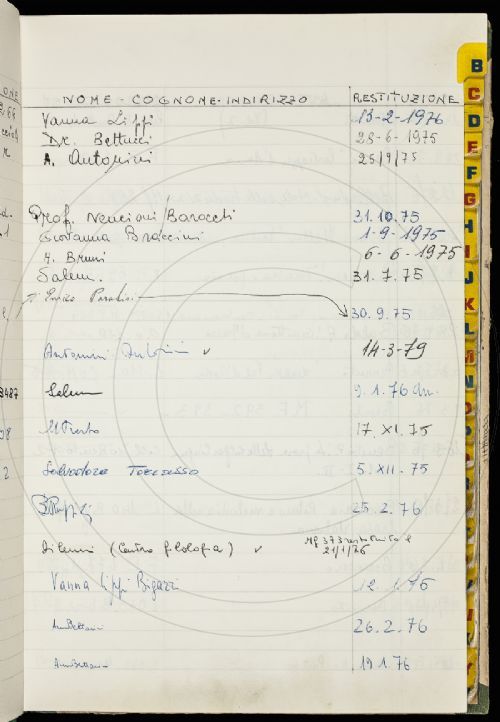 NOME - COGNOME - INDIRIZZO RESTITUZIONE
Vanna Lippi 13-2-1976
Dr. Bettucci 28-6-1975
A. Antonini 25/9/75
Prof. Nencioni/Barocchi 31.10.75
Giovanna Braccini 1-9-1975
H. Bruni 6-6-1975
Salem. 31.7.75
Enrico Paradisi 30.9.75
Antonini 14-3-79
Salem 9.1.76
17.XI.75
Salvatore TOREDESSO 5.XII.75
25.2.76
(Centro filologia) 21/1/76
Vanna Lippi Bigazzi 12.1.76
26.2.76
19 1.76
3487
B
C
D
E
F
G
H
I
J
K
L
M
N
O